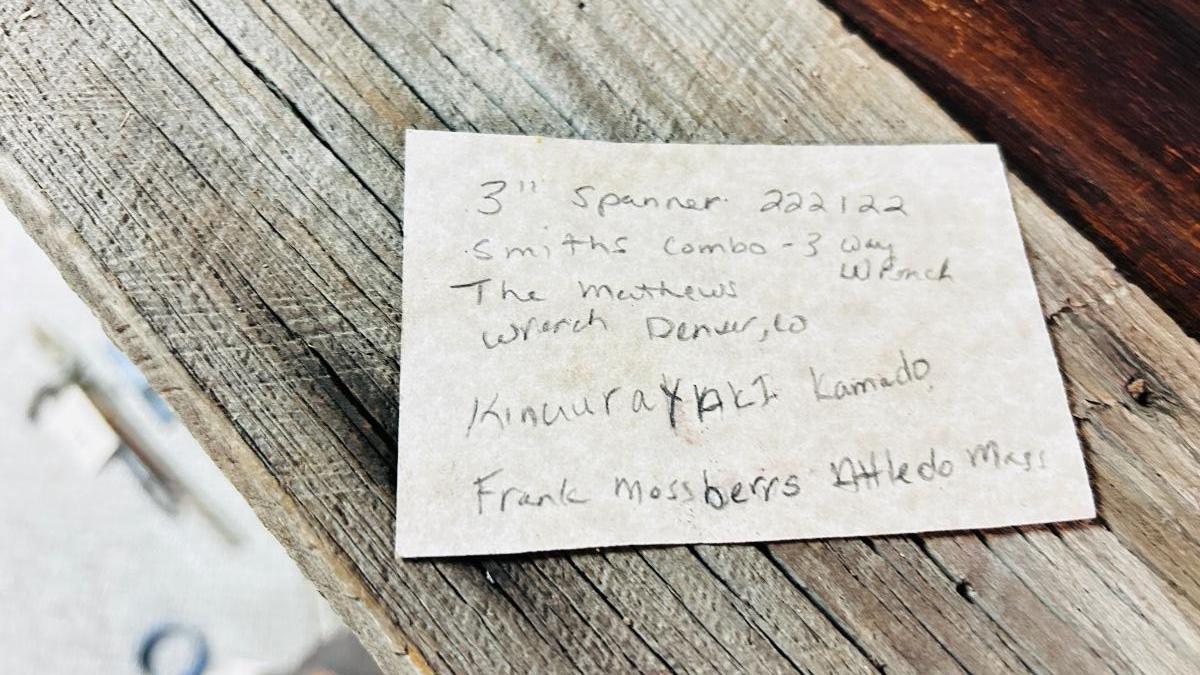 3" Spanner 222122
Smiths Combo - 3 way
wrench
The Mathews
Wrench Denver, Co
KinuuraYAKI Kamado
Frank Mossberrs Attledo Mass